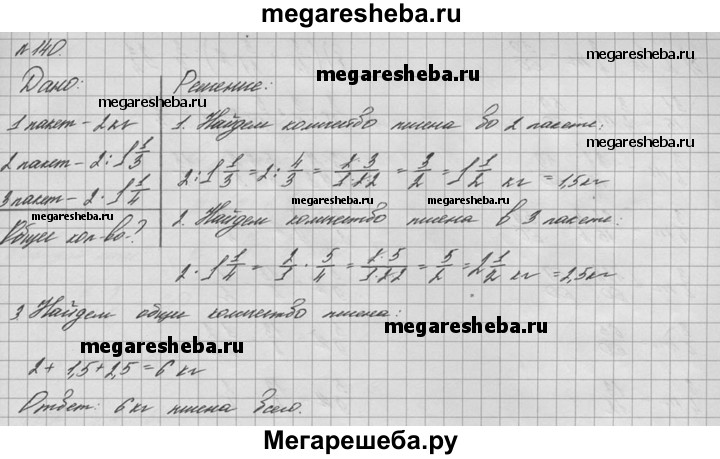 megaresheba.ru
№ 140.
megaresheba.ru
Дано:
Решение:
megaresheba.ru
megaresheba.ru
1 пакет – 2 кг
1. Найдем количество пшена во 2 пакете:
2 пакет – 2 : 1 1/3
2 : 1 1/3 = 2 : 4/3 = 2·3/1·2·2 = 3/2 = 1 1/2 кг = 1,5 кг
3 пакет – 2 · 1 1/4
megaresheba.ru
megaresheba.ru
megaresheba.ru
Общее кол-во?
2. Найдем количество пшена в 3 пакете:
2 · 1 1/4 = 2/1 · 5/4 = 2·5/1·2·2 = 5/2 = 2 1/2 кг = 2,5 кг
3 Найдем общее количество пшена:
megaresheba.ru
megaresheba.ru
2 + 1,5 + 2,5 = 6 кг
Ответ: 6 кг пшена всего.
megaresheba.ru
Мегарешеба.ру